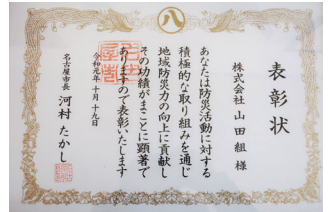 表彰状
株式会社 山田組 様
あなたは防災活動に対する
積極的な取り組みを通じ
地域防災力の向上に貢献し
その功績がまことに顕著で
ありますので表彰いたします
令和元年十月十九日
名古屋市長 河村たかし